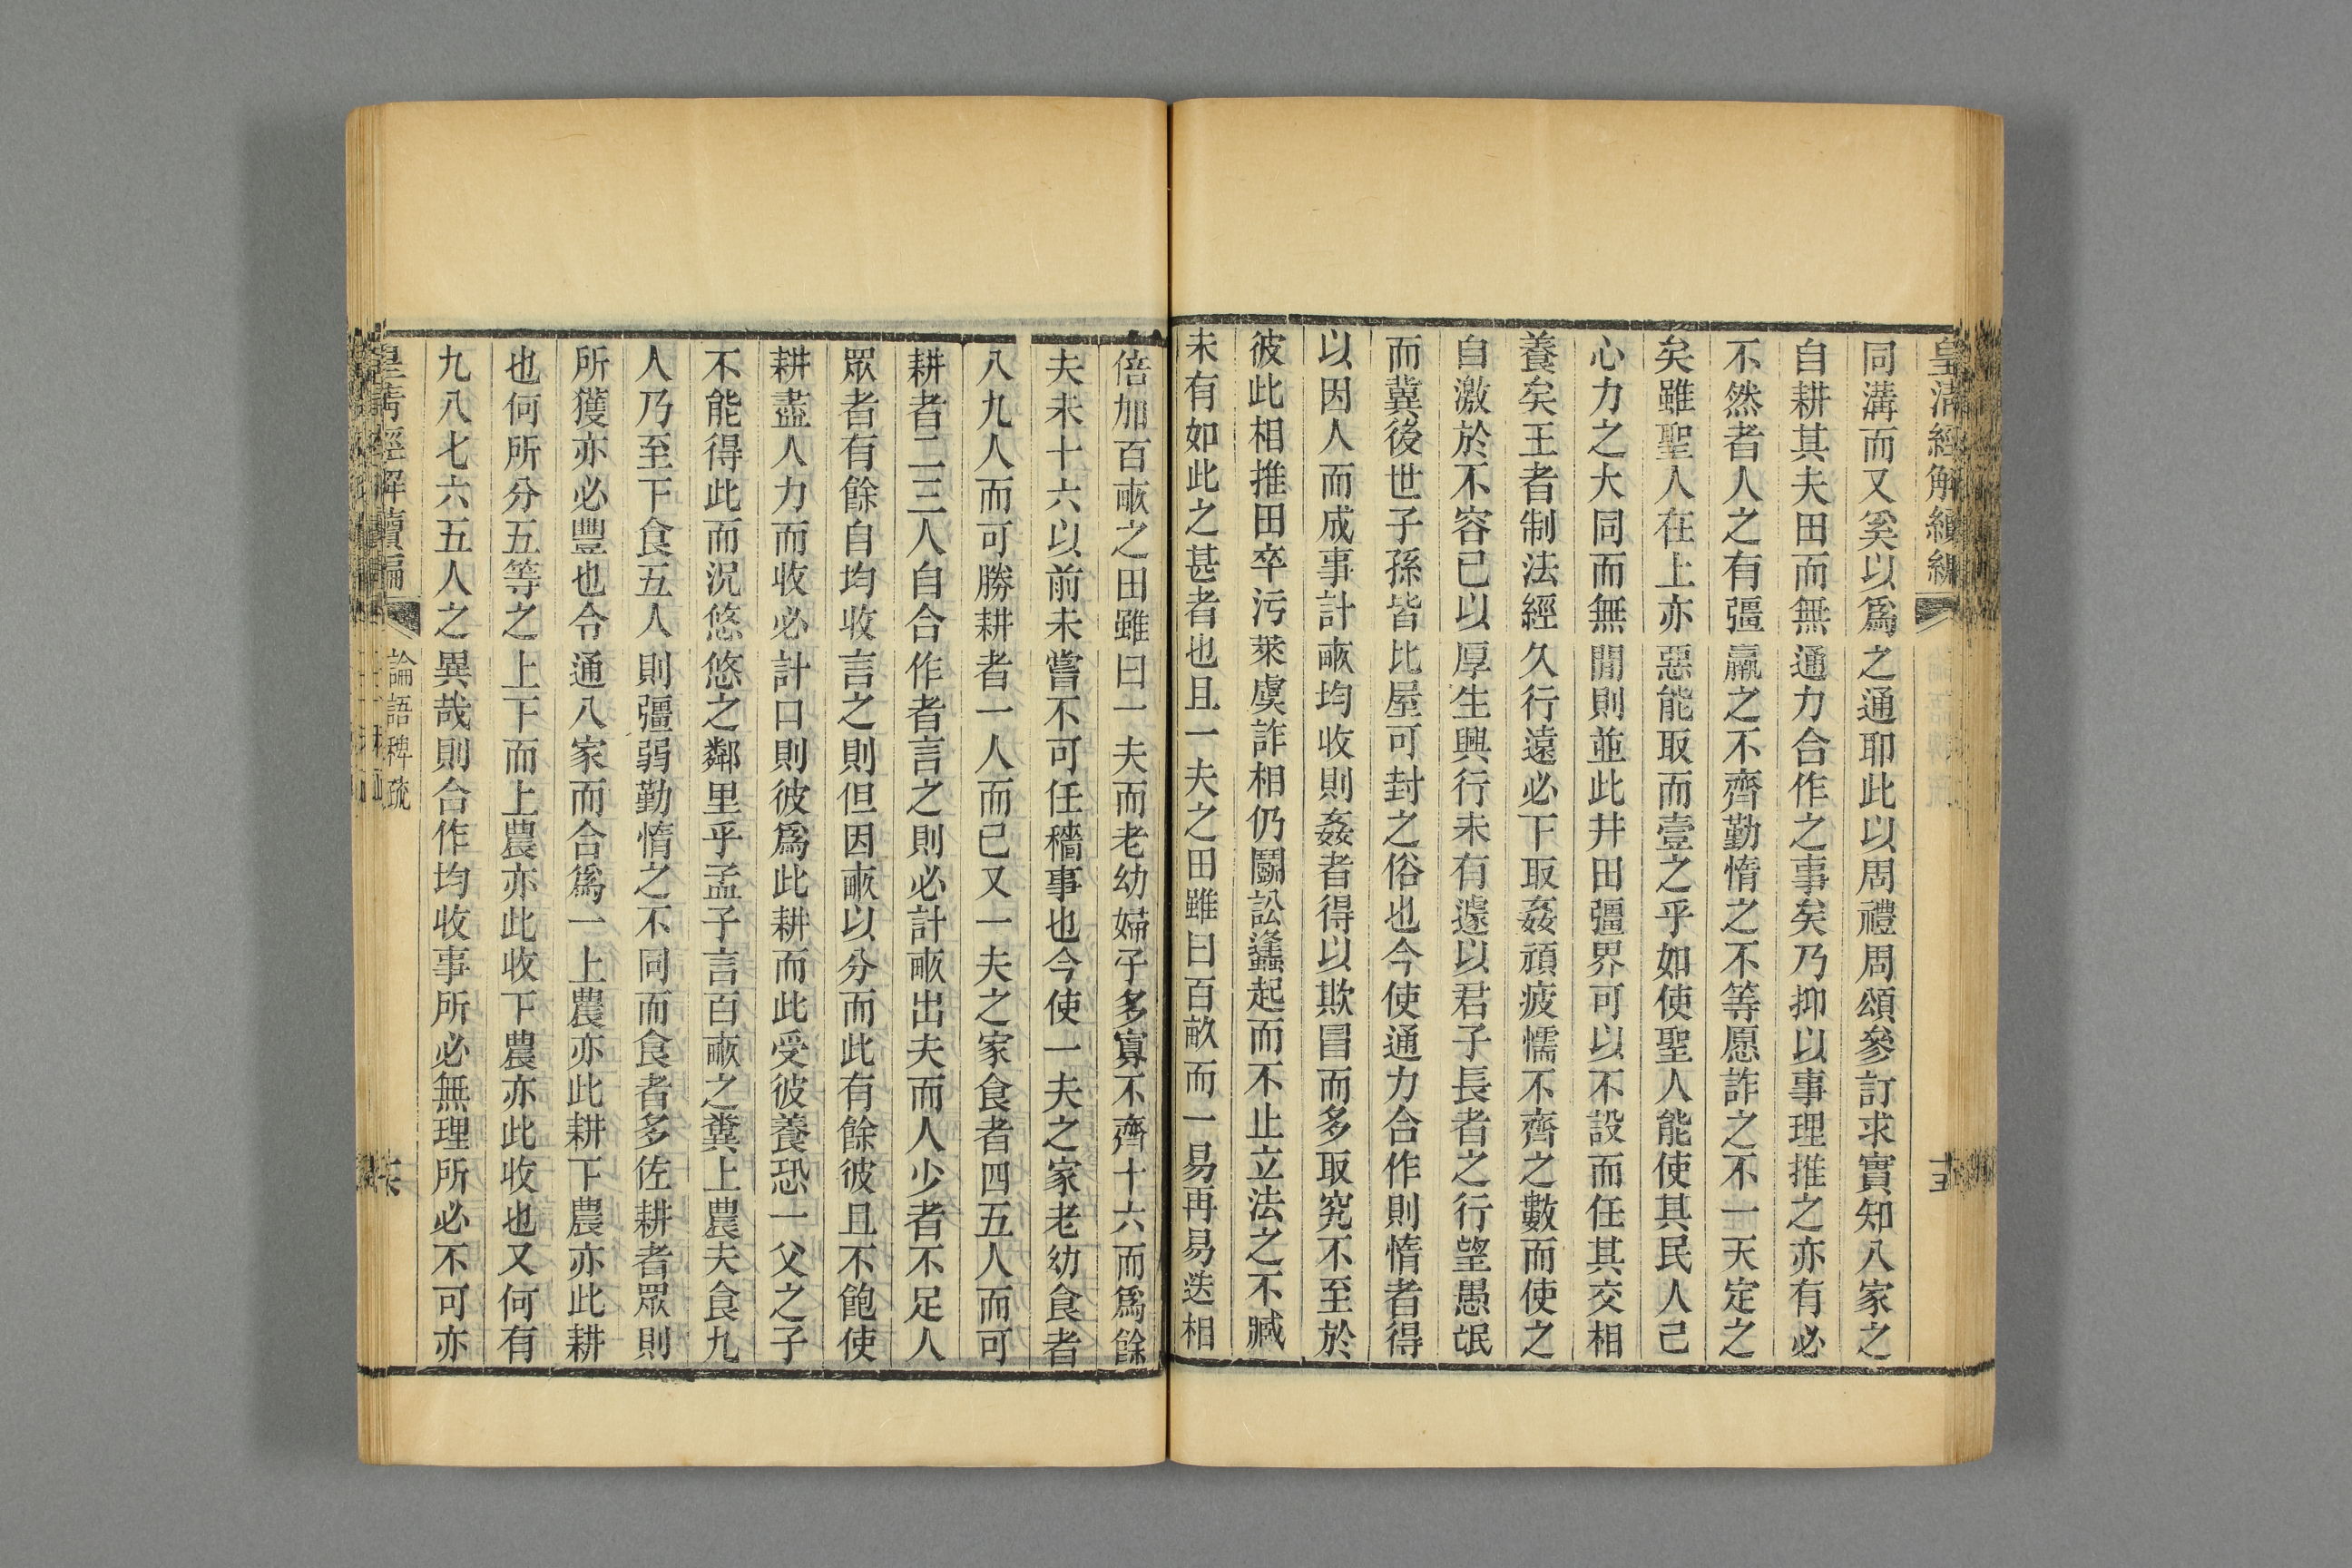 皇清經解續編
十五
同溝而又奚以爲之通耶此以周禮周頌參訂求實知八家之
自耕其夫田而無通力合作之事矣乃抑以事理推之亦有必
不然者人之有彊羸之不齊勤惰之不等愿詐之不一天定之
矣雖聖人在上亦惡能取而壹之乎如使聖人能使其民人己
心力之大同而無閒則並此井田彊界可以不設而任其交相
養矣王者制法經久行遠必下取姦頑疲懦不齊之數而使之
自激於不容已以厚生興行未有遽以君子長者之行望愚氓
而冀後世子孫皆比屋可封之俗也今使通力合作則惰者得
以因人而成事計畞均收則姦者得以欺冒而多取究不至於
彼此相推田卒污萊虞詐相仍鬭訟蠭起而不止立法之不臧
未有如此之甚者也且一夫之田雖曰百畝而一易再易迭相
倍加百畞之田雖曰一夫而老幼婦子多寡不齊十六而爲餘
夫未十六以前未嘗不可任穡事也今使一夫之家老幼食者
八九人而可勝耕者一人而已又一夫之家食者四五人而可
耕者二三人自合作者言之則必計畞出夫而人少者不足人
眾者有餘自均收言之則但因畞以分而此有餘彼且不飽使
耕盡人力而收必計口則彼爲此耕而此受彼養恐一父之子
不能得此而況悠悠之鄰里乎孟子言百畞之糞上農夫食九
人乃至下食五人則彊弱勤惰之不同而食者多佐耕者眾則
所獲亦必豐也令通八家而合爲一上農亦此耕下農亦此耕
也何所分五等之上下而上農亦此收下農亦此收也又何有
九八七六五人之異哉則合作均收事所必無理所必不可亦
皇清經解續編
論語稗疏